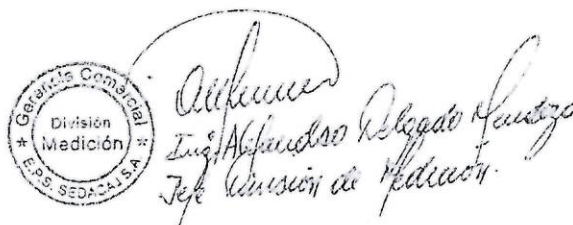 Gerencia Comercial
División
Medición
E.P.S. SEDACAJ S.A
Ing. Alejandro Delgado Mendoza
Jefe División de Medición.